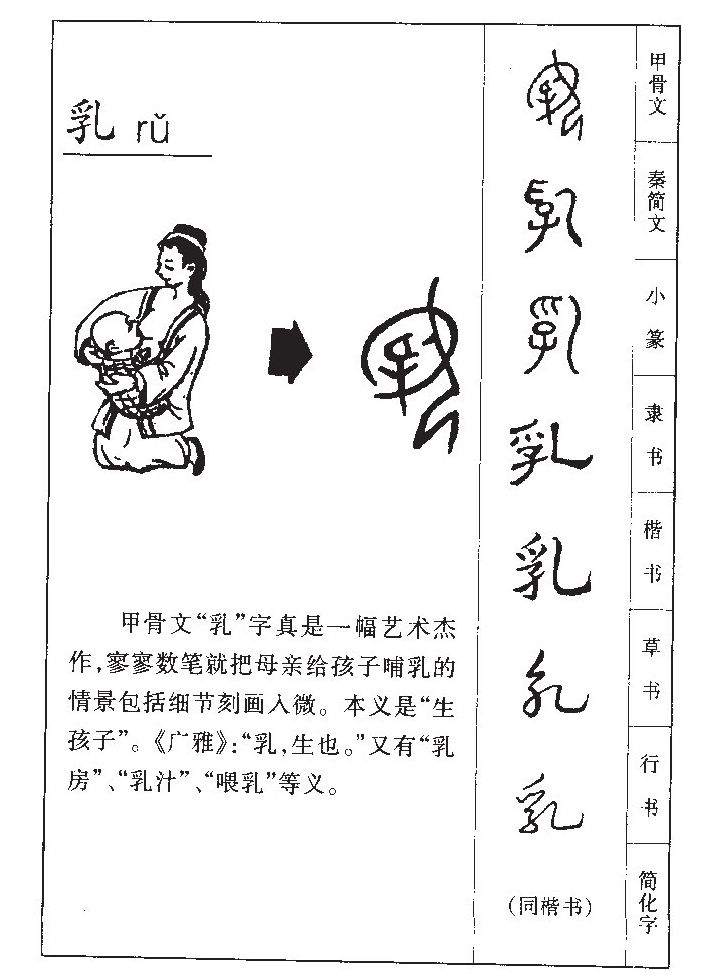 乳 rǔ
甲骨文“乳”字真是一幅艺术杰
作，寥寥数笔就把母亲给孩子哺乳的
情景包括细节刻画入微。本义是“生
孩子”。《广雅》：“乳，生也。”又有“乳
房”、“乳汁”、“喂乳”等义。
乳
乳
乳
乳
乳
乳
乳
(同楷书)
甲骨文
秦简文
小篆
隶书
楷书
草书
行书
简化字